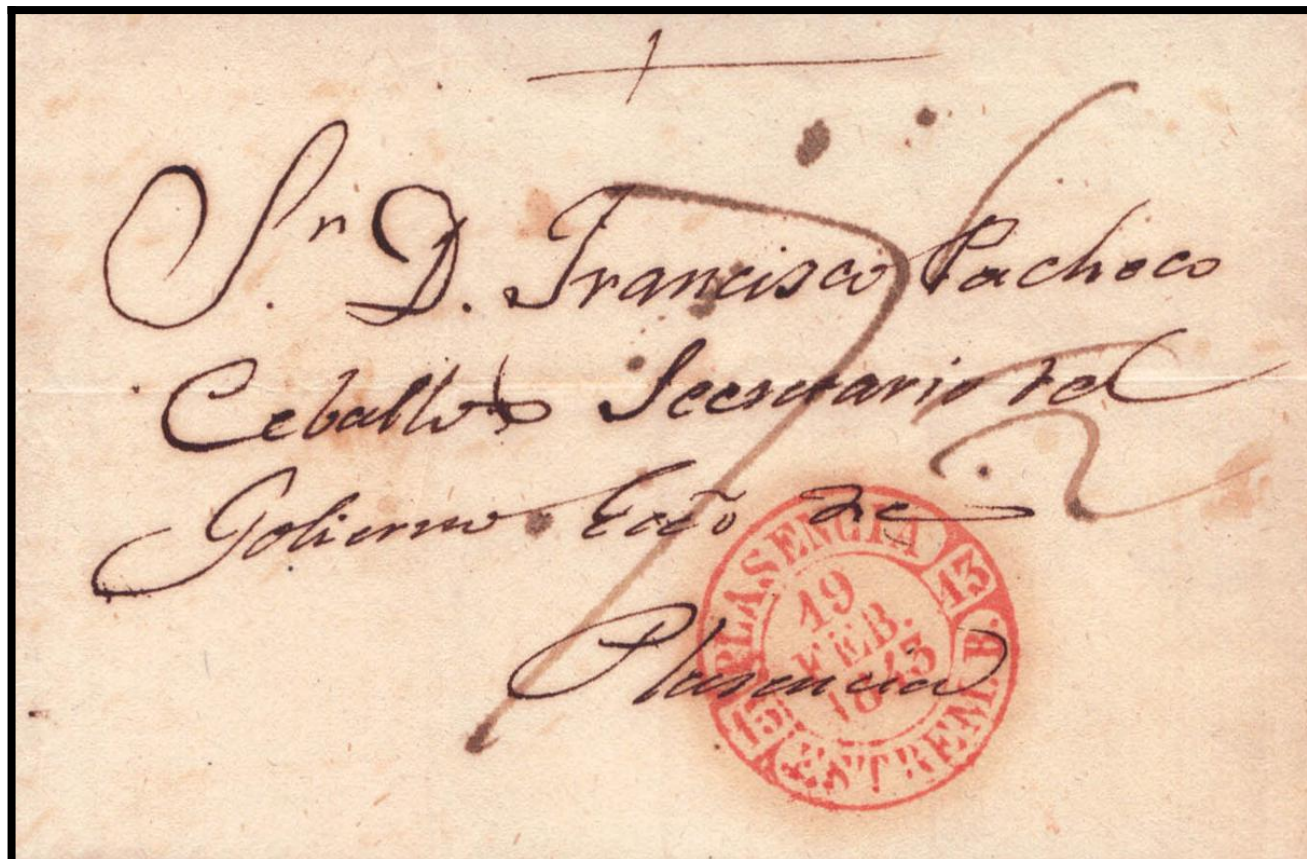 Sr.n D. Francisco Pacheco
Ceballos Secretario del
Gobierno Ecco de
Plasencia
PLASENCIA
13
19
FEB.
1843
ESTREM. B.